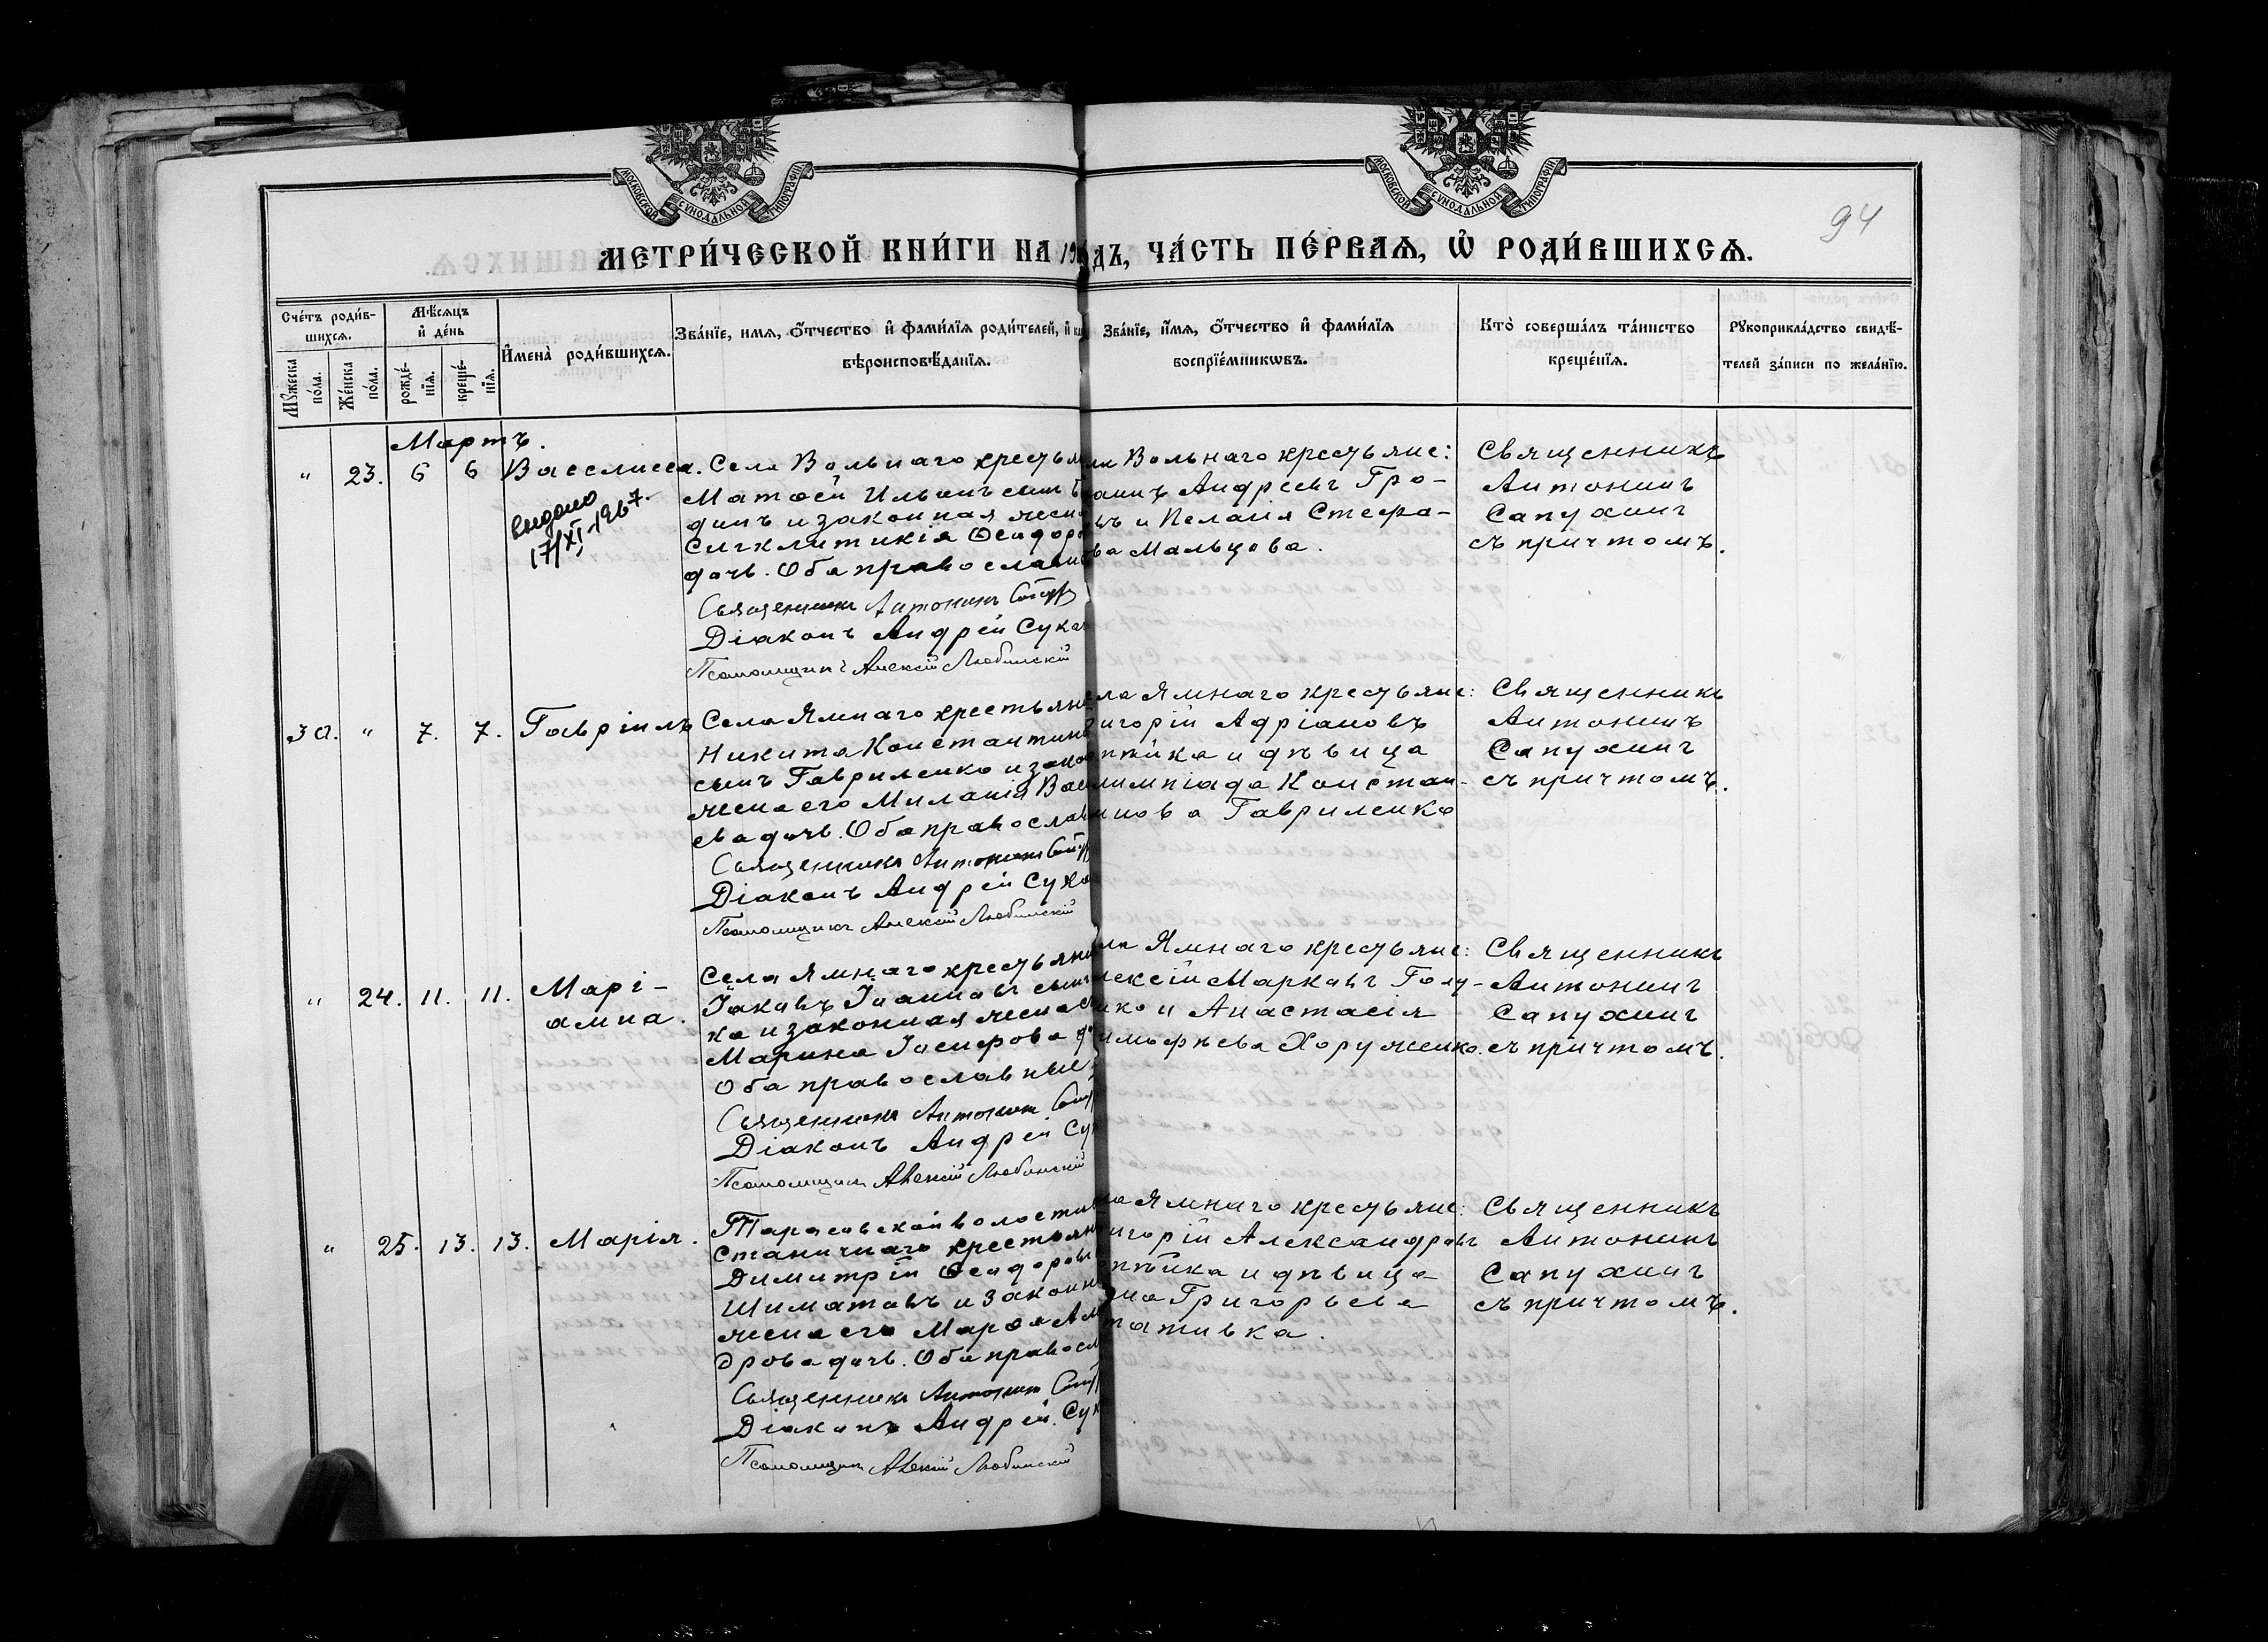 МОСКОВСКОЙ СУНОДАЛЬНОЙ ТИПОГРАФІИ
МОСКОВСКОЙ СУНОДАЛЬНОЙ ТИПОГРАФІИ
94
МЕТРИ́ЧЕСКОЙ КНИ́ГИ НА 19 ДЪ, ЧА́СТЬ ПЕ́РВАѦ, Ѡ РОДИ́ВШИХСѦ.
Сче́тъ роди́в-
шихсѧ.
Мꙋжеска по́ла.
Же́нска по́ла.
Мѣ́сѧцъ
и де́нь
рожде́-
нїѧ.
креще́-
нїѧ.
И҆мена̀ роди́вшихсѧ.
Зва́нїе, имѧ, о́тчество и фами́лїѧ роди́телей, и
вѣроисповѣ́данїѧ.
Зва́нїе, и́мѧ, о́тчество и фами́лїѧ
воспрїе́мникѡвъ.
Кто̀ соверша́лъ та́инство
креще́нїѧ.
Рꙋкоприкла́дство свидѣ́-
телей за́писи по жела́нїю.
Мартъ.
" 23. 6 6 Васслисса.
видано
17/XI 1967.
Села Вольнаго крестьян
Матѳей Ильинъ сынъ
динъ и законная жена
Сигклитикія Ѳеодоро
дочь. Оба православн
Священникъ Антонинъ
Діаконъ Андрей Сука
Псаломщикъ Алексій Любинскій
ла Вольнаго крестьяне:
Андреевъ Гро-
въ и Пелагія Стефа-
ва Мальцова.
Священникъ
Антонинъ
Сапухинъ
съ причтомъ.
30. " 7. 7. Гавріилъ
Села Ямнаго крестьян
Никита Константин
сынъ Гавриленко и зако
жена его Миланія Ва
ева дочь. Оба православ
Священникъ Антонинъ
Діаконъ Андрей Сука
Псаломщикъ Алексій Любинскій
ла Ямнаго крестьяне:
игорій Адріановъ
пѣйка и дѣвица
лимпіада Констан-
инова Гавриленко
Священникъ
Антонинъ
Сапухинъ
съ причтомъ.
" 24. 11. 11. Марі-
амна.
Села Ямнаго крестьян
Іаковъ Іоанновъ сынъ
ка и законная жена
Марина Іосифова
Оба православные
Священникъ Антонинъ
Діаконъ Андрей Су
Псаломщикъ Алексій Любинскій
ла Ямнаго крестьяне:
лексій Марковъ Голу-
нко и Анастасія
имофѣева Хоруженко.
Священникъ
Антонинъ
Сапухинъ
съ причтомъ.
" 25. 13. 13. Марія.
Тарасовской волости
Станичнаго крестьян
Димитрій Ѳеодоров
Шиматовъ и законн
жена его Марѳа
дрова дочь. Оба правосл
Священникъ Антонинъ
Діаконъ Андрей Сук
Псаломщикъ Алексій Любинскій
ла Ямнаго крестьяне:
игорій Александровъ
пѣйка и дѣвица
на Григорьева
Священникъ
Антонинъ
Сапухинъ
съ причтомъ.